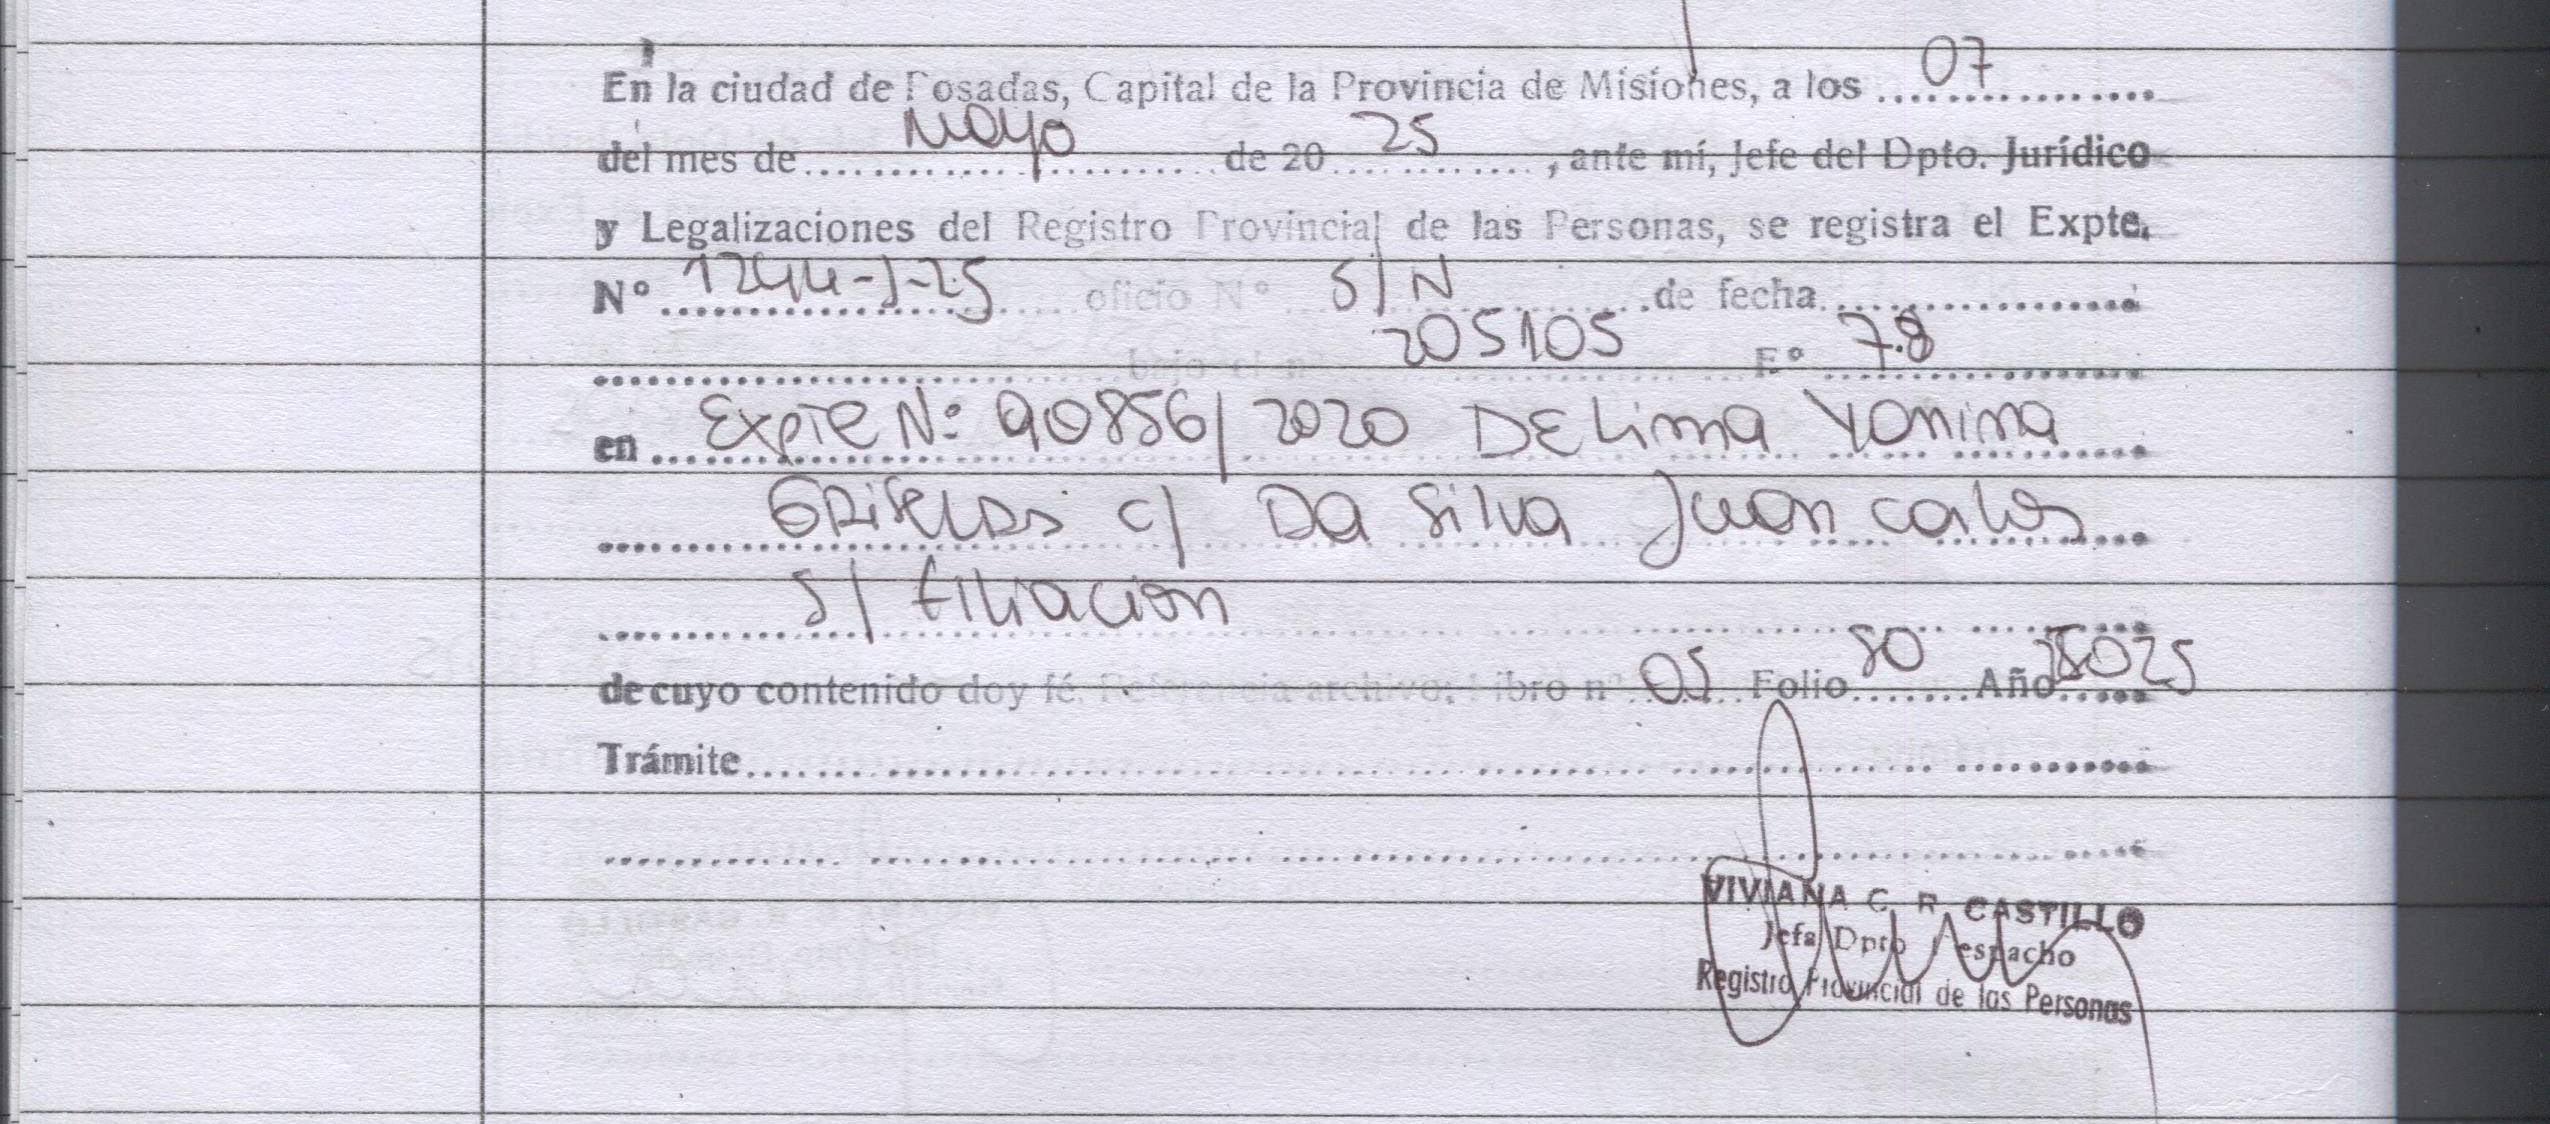 En la ciudad de Posadas, Capital de la Provincia de Misiones, a los ....07....
del mes de....Mayo.... de 20 ..25.. , ante mí, Jefe del Dpto. Jurídico
y Legalizaciones del Registro Provincial de las Personas, se registra el Expte.
N° 1244-J-25 oficio N° S/N de fecha............
............ bajo el n° 205105 F° 78
en Expte N°: 90856/2020 DE Lima Yonina
GRISELDA c/ Da Silva Juan Carlos
S/ Filiacion
de cuyo contenido doy fé. Referencia archivo: Libro n° 05 Folio 80 Año 2025
Trámite............
VIVIANA C. R. CASTILLO
Jefa Dpto Despacho
Registro Provincial de las Personas